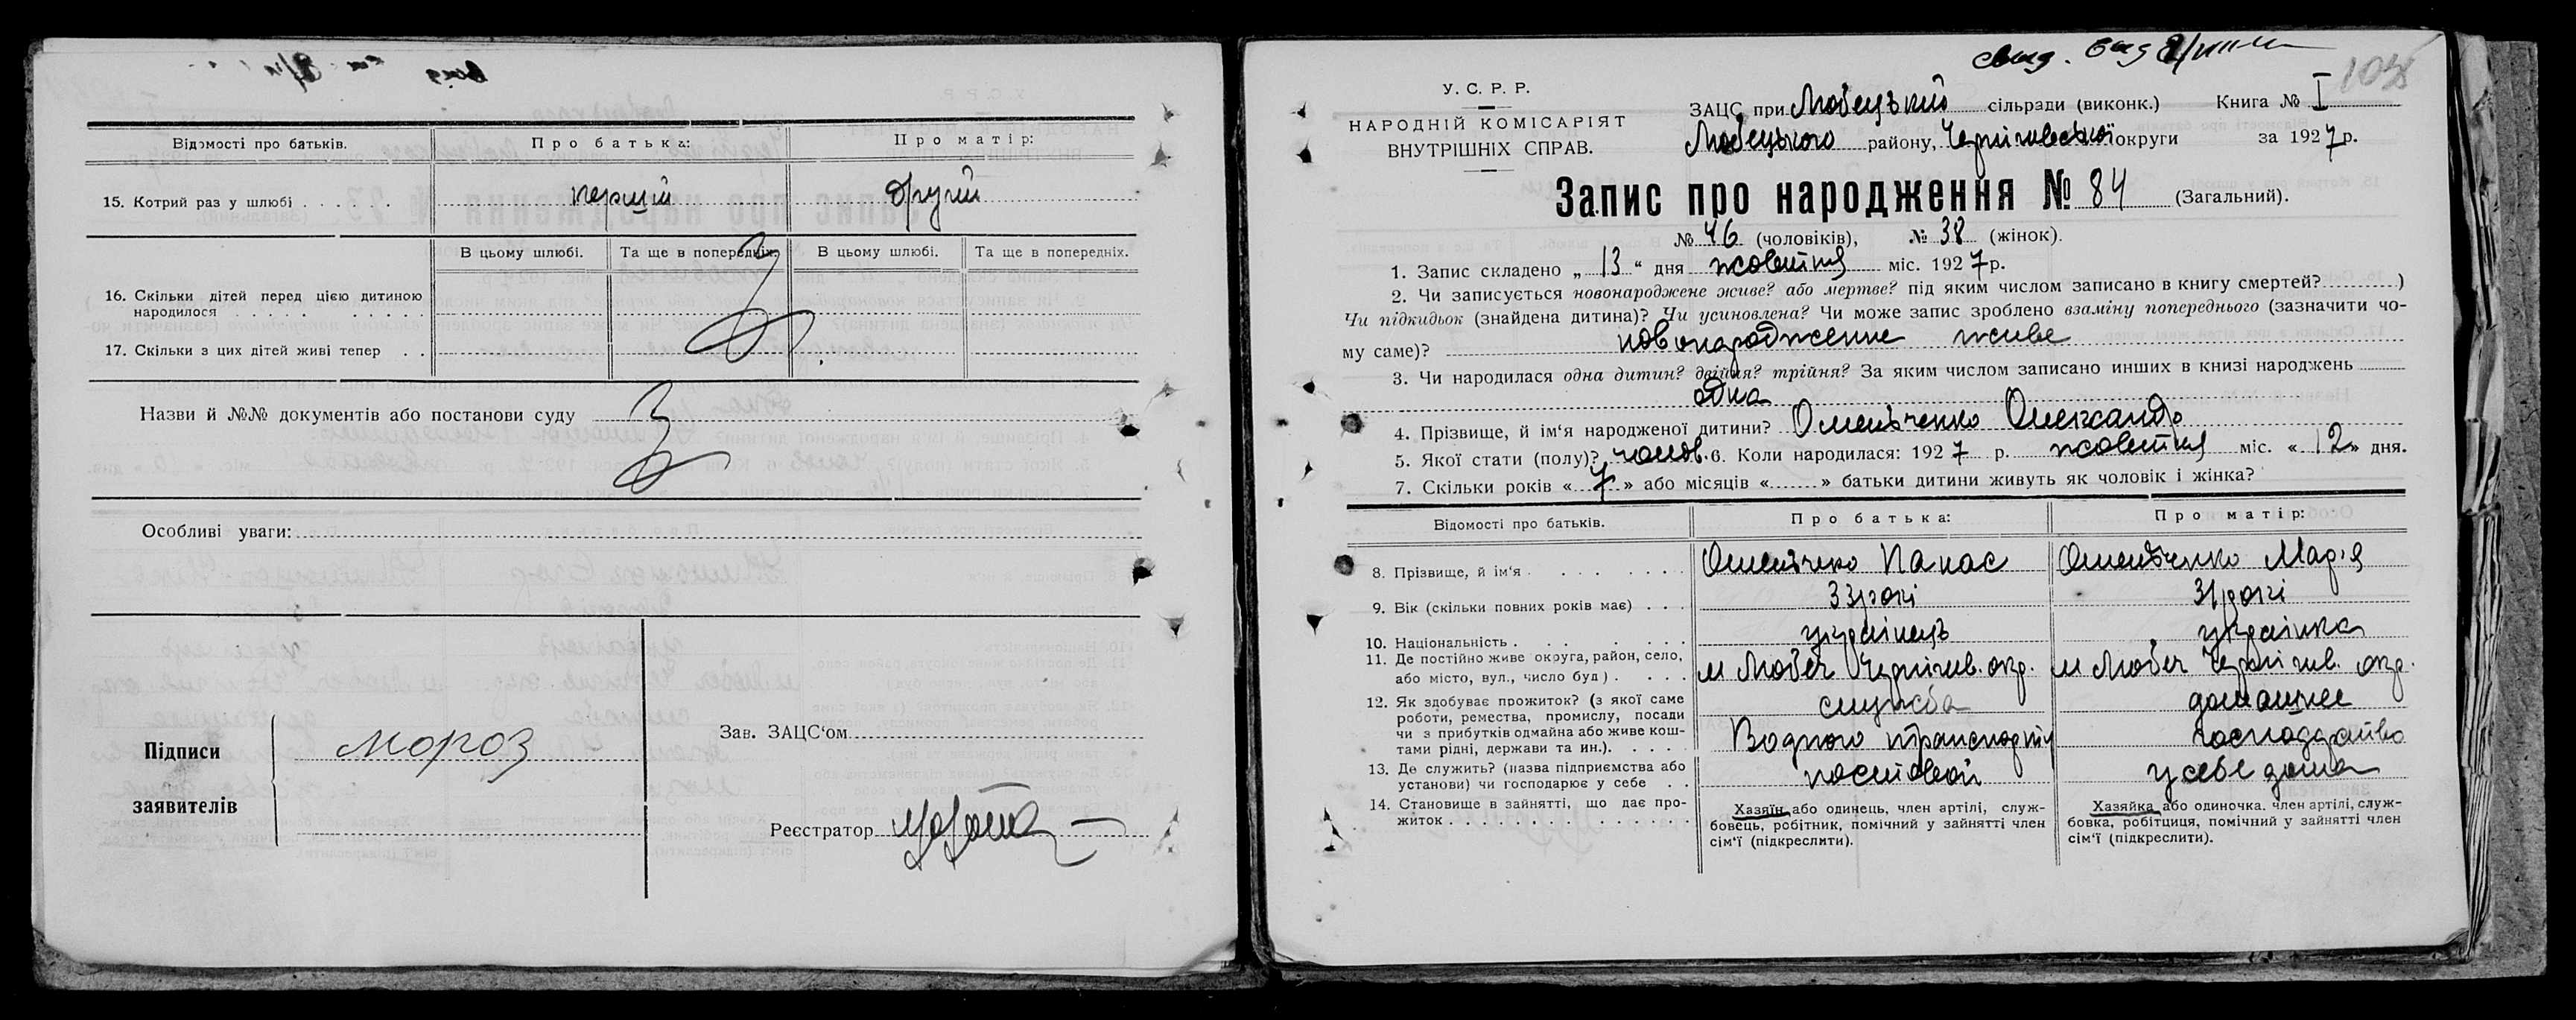 Відомості про батьків.
Про батька:
Про матір:
15. Котрий раз у шлюбі
перший
другий
В цьому шлюбі.
Та ще в попередніх.
В цьому шлюбі.
Та ще в попередніх.
16. Скільки дітей перед цією дитиною
народилося
17. Скільки з цих дітей живі тепер
Назви й №№ документів або постанови суду
Особливі уваги:
Підписи
заявителів
Мороз
Зав. ЗАЦС‘ом
Реєстратор
У. С. Р. Р.
НАРОДНІЙ КОМІСАРІЯТ
ВНУТРІШНІХ СПРАВ.
ЗАЦС при Любецький сільради (виконк.) Книга № I
Любецького району, Чернігівської округи за 1927 р.
Запис про народження № 84 (Загальний).
№ 46 (чоловіків), № 38 (жінок).
1. Запис складено „13“ дня жовтня міс. 1927 р.
2. Чи записується новонароджене живе? або мертве? під яким числом записано в книгу смертей? )
Чи підкидьок (знайдена дитина)? Чи усиновлена? Чи може запис зроблено взаміну попереднього (зазначити чо-
му саме)? новонародженне живе
3. Чи народилася одна дитин? двійня? трійня? За яким числом записано инших в книзі народжень
одна
4. Прізвище, й ім‘я народженої дитини? Омельченко Олександр
5. Якої стати (полу)? чолов. 6. Коли народилася: 1927 р. жовтня міс. «12» дня.
7. Скільки років «7» або місяців « » батьки дитини живуть як чоловік і жінка?
Відомості про батьків.
Про батька:
Про матір:
8. Прізвище, й ім‘я
Омельченко Панас
Омельченко Марія
9. Вік (скільки повних років має)
33 рокі
31 рокі
10. Національність
українець
українка
11. Де постійно живе округа, район, село,
або місто, вул., число буд)
м Любеч Чернігив. окр.
м Любеч Чернігив. окр.
12. Як здобуває прожиток? (з якої саме
роботи, ремества, промислу, посади
чи з прибутків одмайна або живе кош-
тами рідні, держави та ин.).
служба
Водного транспорту
домашнє
господарство
13. Де служить? (назва підприємства або
установи) чи господарює у себе
постовой
у себе дома
14. Становище в зайнятті, що дає про-
житок
Хазяїн або одинець, член артілі, служ-
бовець, робітник, помічний у зайнятті член
сім‘ї (підкреслити).
Хазяйка або одиночка, член артілі, служ-
бовка, робітниця, помічний у зайнятті член
сім‘ї (підкреслити).